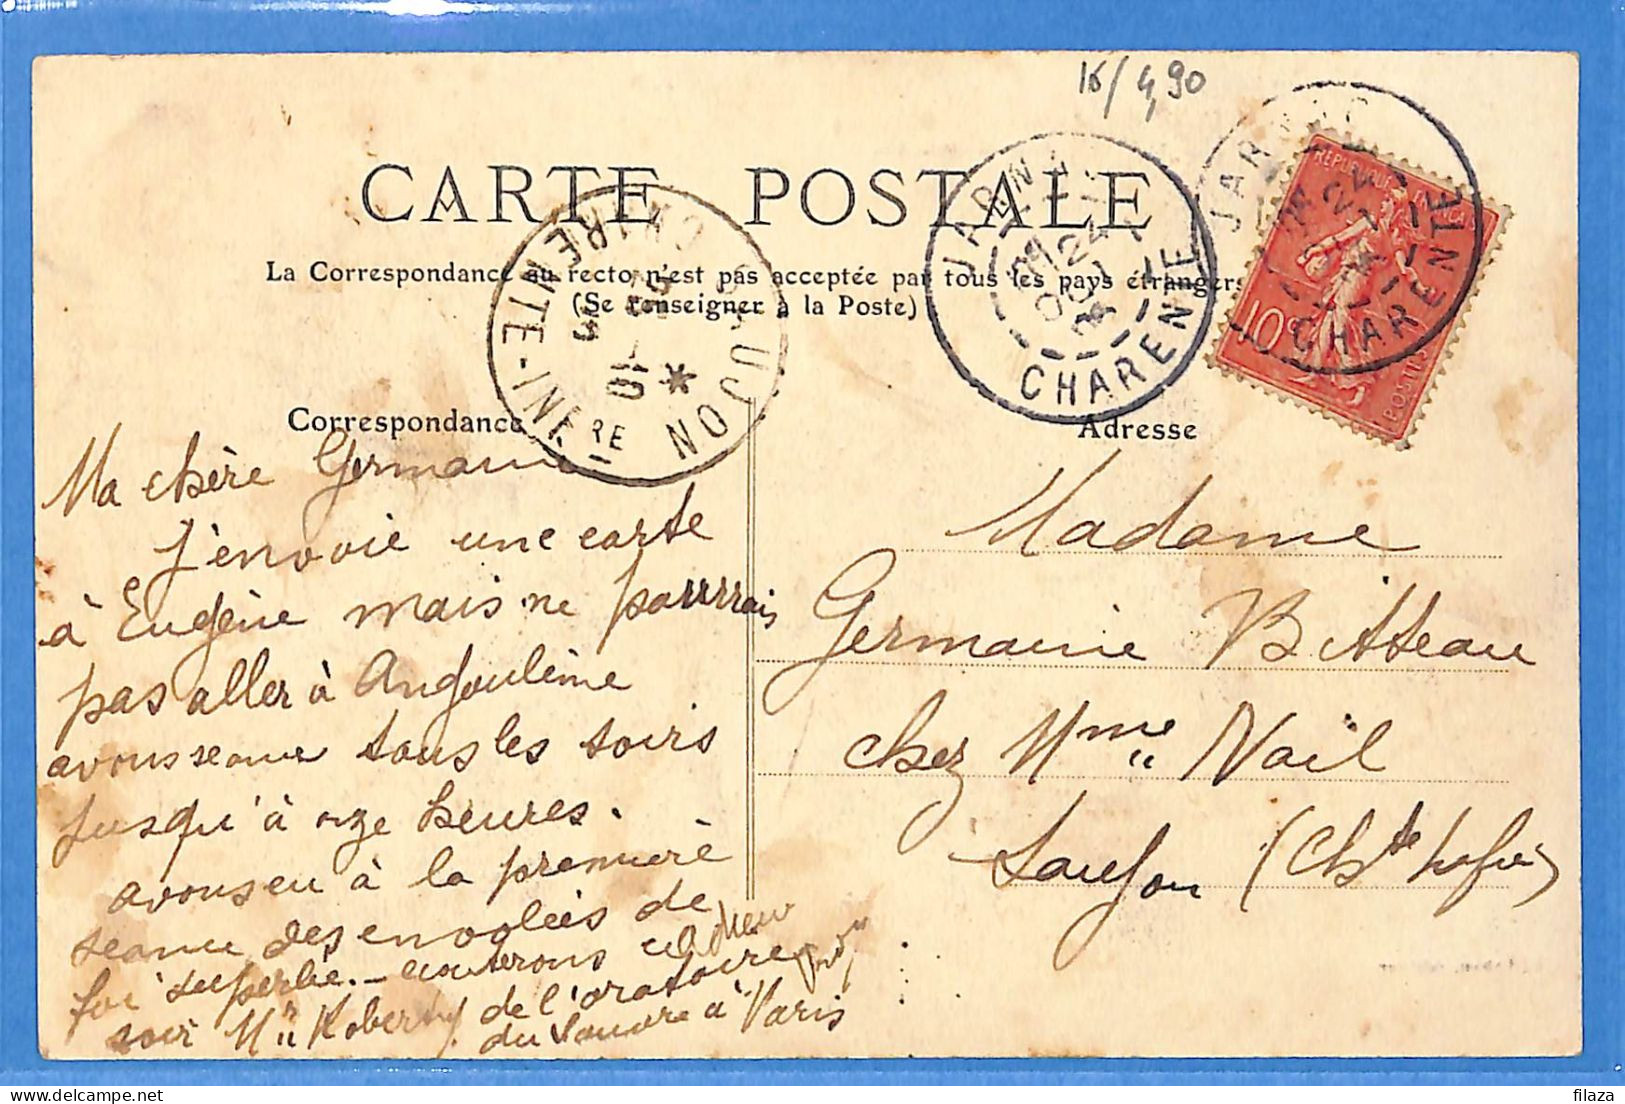 16/4,90
CARTE POSTALE
La Correspondance au recto n'est pas acceptée par tous les pays étrangers
(Se renseigner à la Poste)
JARNAC
CHARENTE
JARNAC
CHARENTE
REPUBLIQUE FRANCAISE
10c
POSTES
SAUJON
CH'TE INFRE
Correspondance
Adresse
Ma chère Germaine
J'envoie une carte
à Eugène mais ne pourrrais
pas aller à Angoulême
avons séance tous les soirs
jusqu'à onze heures.
avons eu à la première
séance des envolées de
foi superbe. - écouterons
soir Mr de l'oratoire
du Louvre à Paris
Madame
Germaine Bitteau
chez Mme Nail
Saujon (Chte Infre)
filaza